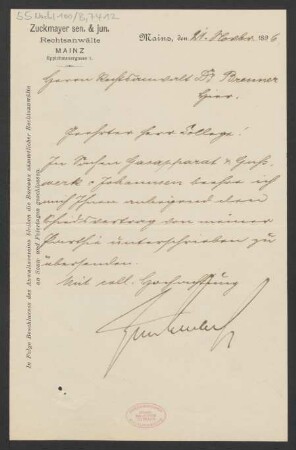 SS Nachl. 100 / B, 7412
Zuckmayer sen. & jun.
Rechtsanwälte
MAINZ
Mainz, den 21. 1896
Herrn Rechtsanwalt Dr Brenner
hier.
Geehrter Herr College!
In Sachen Gasapparat & Guß-
werk Johannsen beehre ich
mich Ihnen anliegend den
Schiedsvertrag von meiner
Parthie unterschrieben zu
übersenden.
Mit coll. Hochachtung
Zuckmayer
In Folge Beschlusses des Anwaltsvereins bleiben die Bureaus sämmtlicher Rechtsanwälte
an Sonn- und Feiertagen geschlossen.